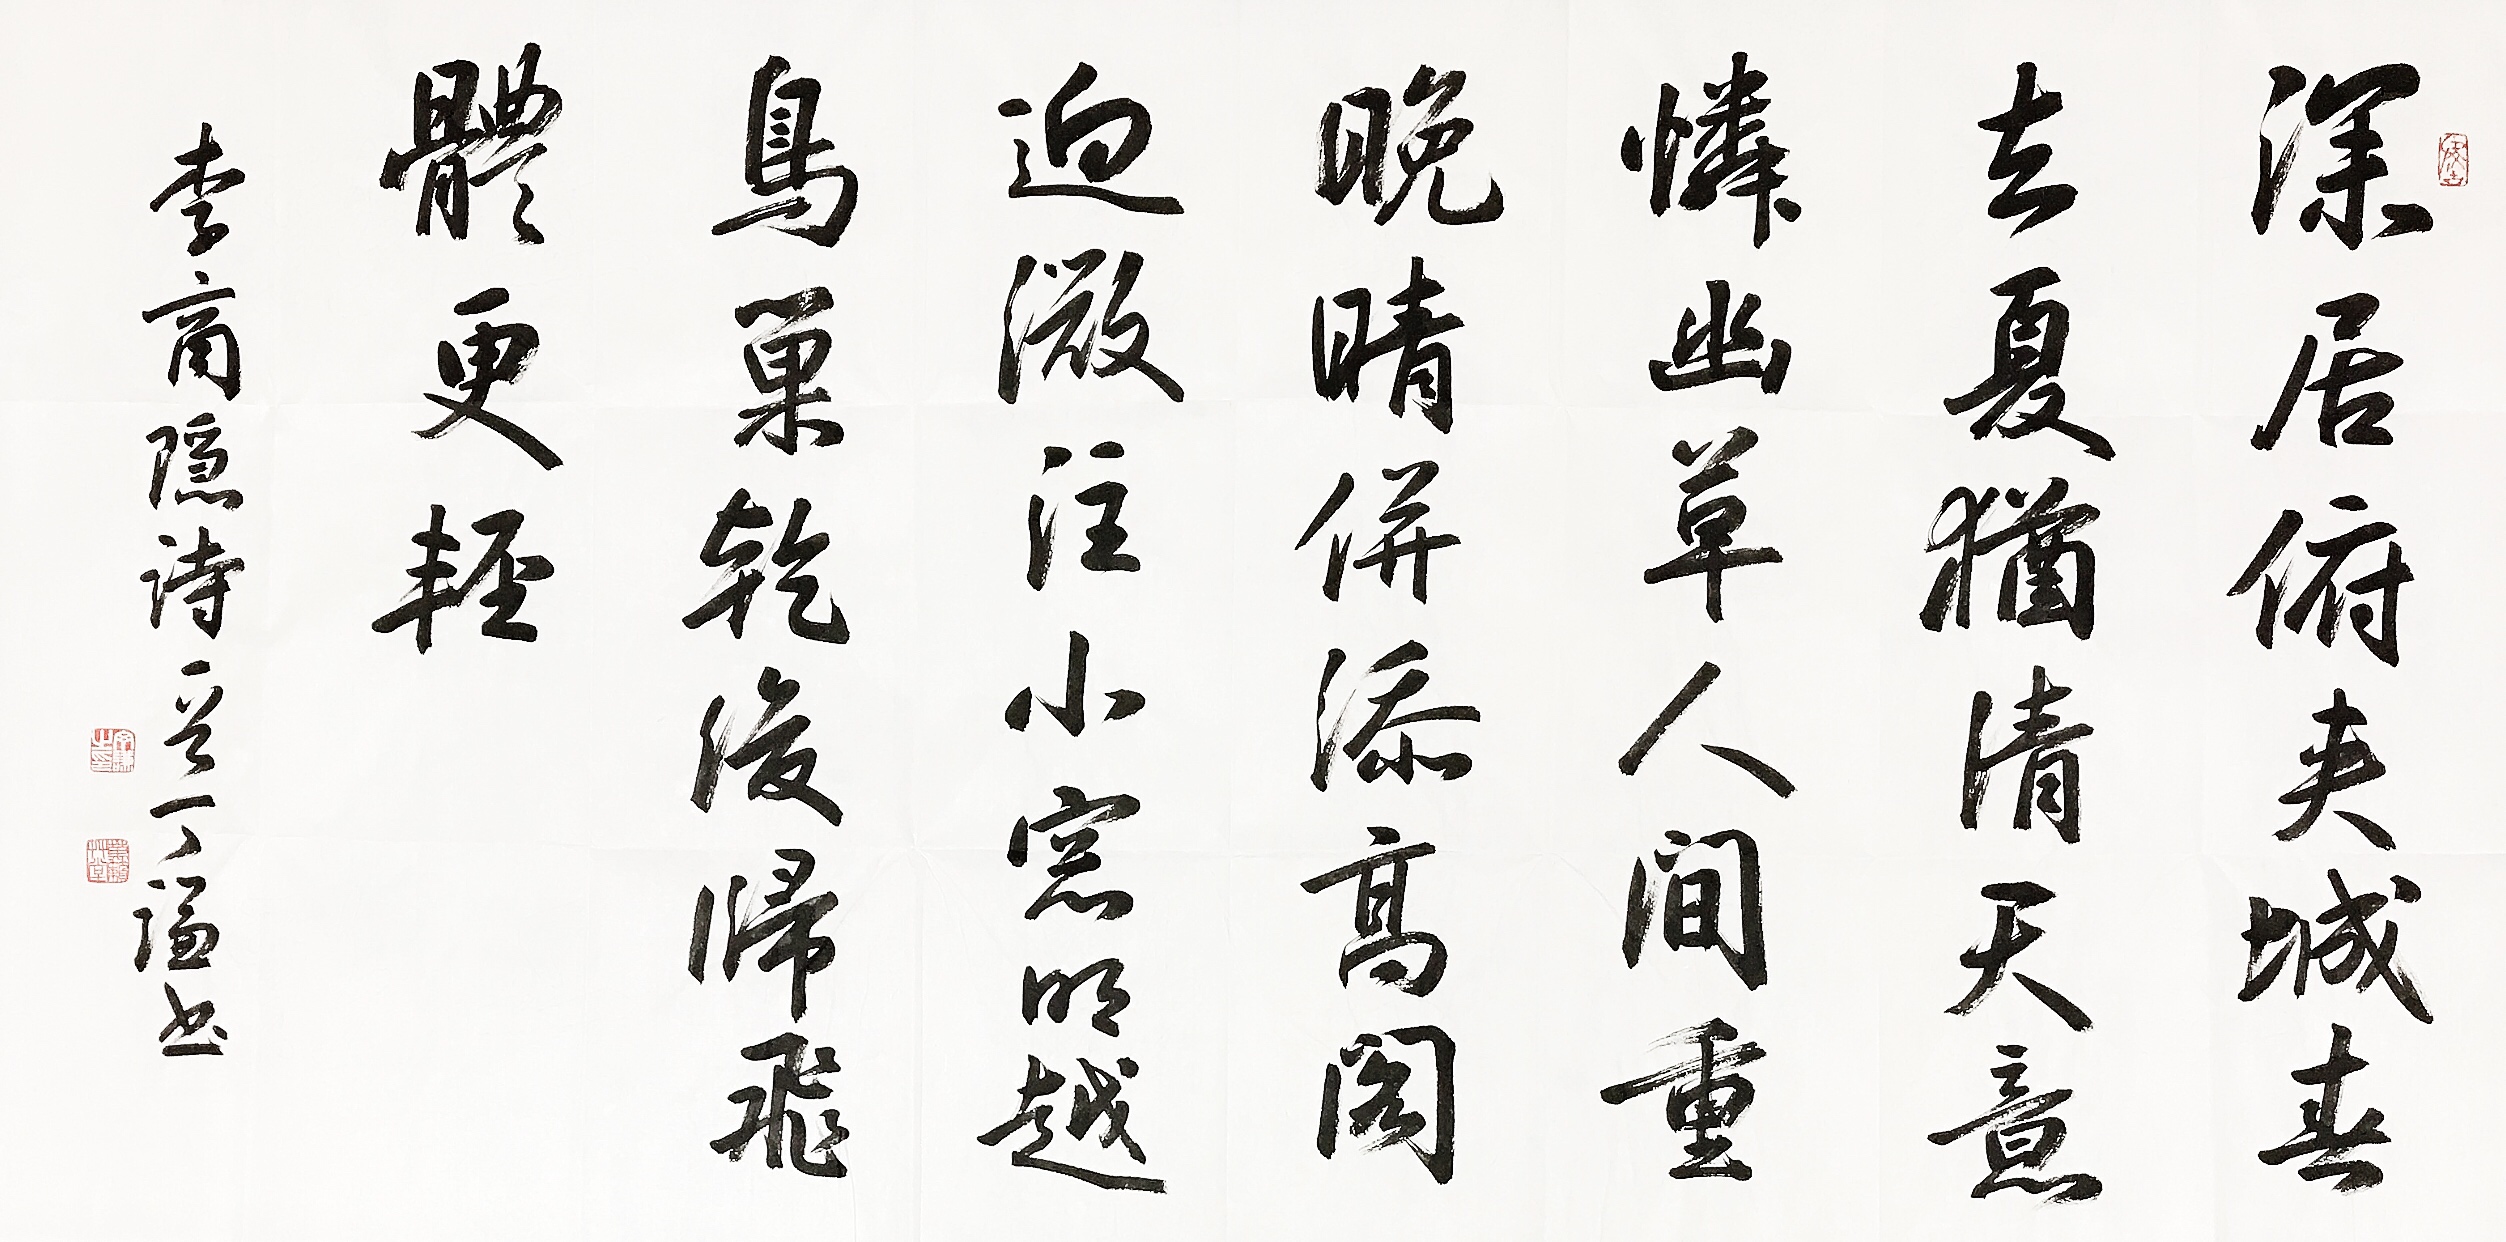 深居俯夹城春
去夏猶清天意
憐幽草人间重
晚晴併添高阁
迎微注小窓明越
鳥巢乾後歸飛
體更輕
李商隐诗